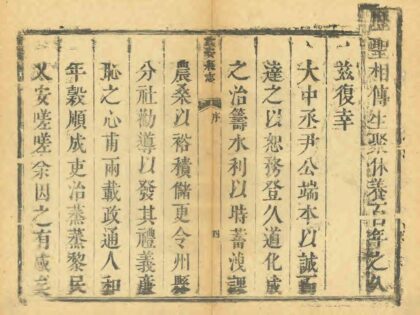 歷聖相傳生聚休養百年之久
茲復幸
大中丞尹公端本以誠而
達之以恕務登久道化成
之治籌水利以時蓄洩課
縣志
序
四
農桑以裕積儲更令州縣
分社勸導以發其禮義廉
恥之心甫兩載政通人和
年穀順成吏治蒸蒸黎民
乂安嗟嗟余因之有感矣